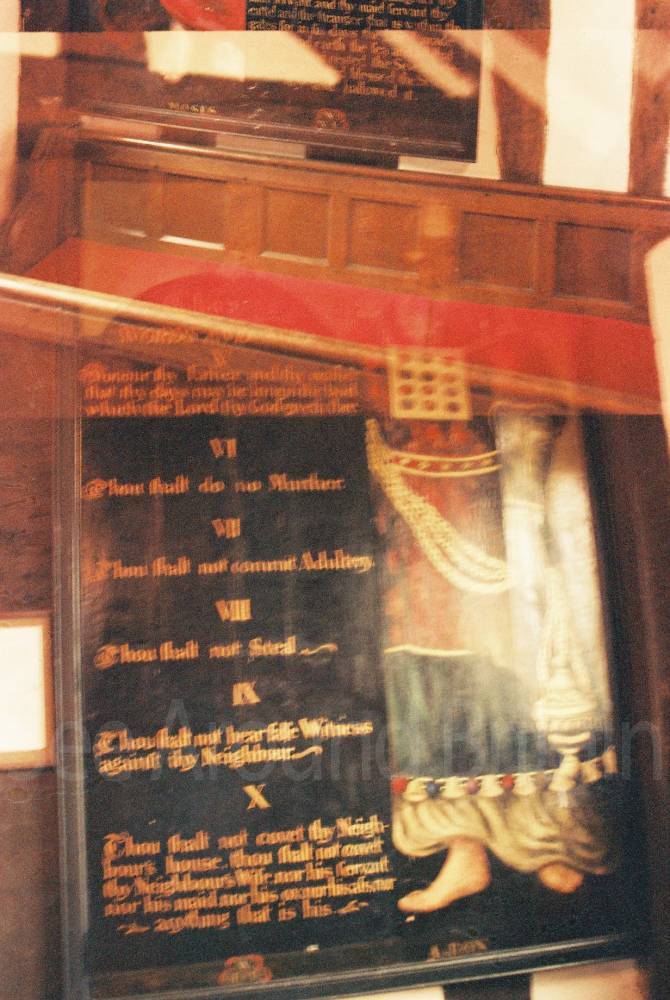 and thy maid servant thy
and the stranger that is within thy
gates for in six days
the Sea
blessed the
hallowed it.
MOSES
V
Honour thy Father and thy mother
that thy days may be long in the land
which the Lord thy God giveth thee
VI
Thou shalt do no Murther
VII
Thou shalt not commit Adultry.
VIII
Thou shalt not Steal
IX
Thou shalt not bear false Witness
against thy Neighbour.
X
Thou shalt not covet thy Neigh-
bours house, thou shalt not covet
thy Neighbours Wife, nor his servant
nor his maid, nor his ox, nor his ass, nor
anything that is his
See Around Britain